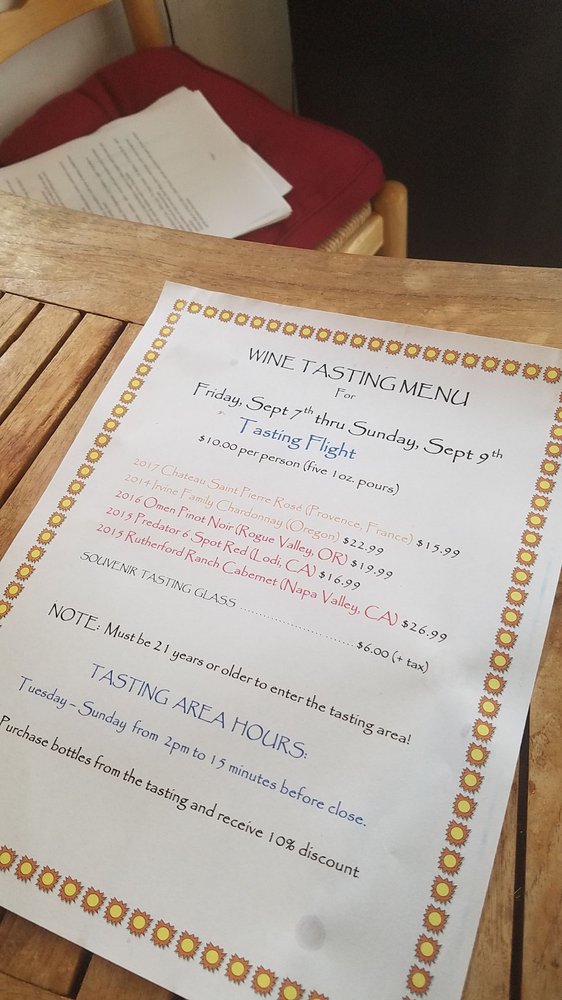 WINE TASTING MENU
For
Friday, Sept 7th thru Sunday, Sept 9th
Tasting Flight
$10.00 per person (five 1oz. pours)
2017 Chateau Saint Pierre Rosé (Provence, France) $15.99
2014 Irvine Family Chardonnay (Oregon) $22.99
2016 Omen Pinot Noir (Rogue Valley, OR) $19.99
2015 Predator 6 Spot Red (Lodi, CA) $16.99
2015 Rutherford Ranch Cabernet (Napa Valley, CA) $26.99
SOUVENIR TASTING GLASS ........................... $6.00 (+ tax)
NOTE: Must be 21 years or older to enter the tasting area!
TASTING AREA HOURS:
Tuesday – Sunday from 2pm to 15 minutes before close.
Purchase bottles from the tasting and receive 10% discount